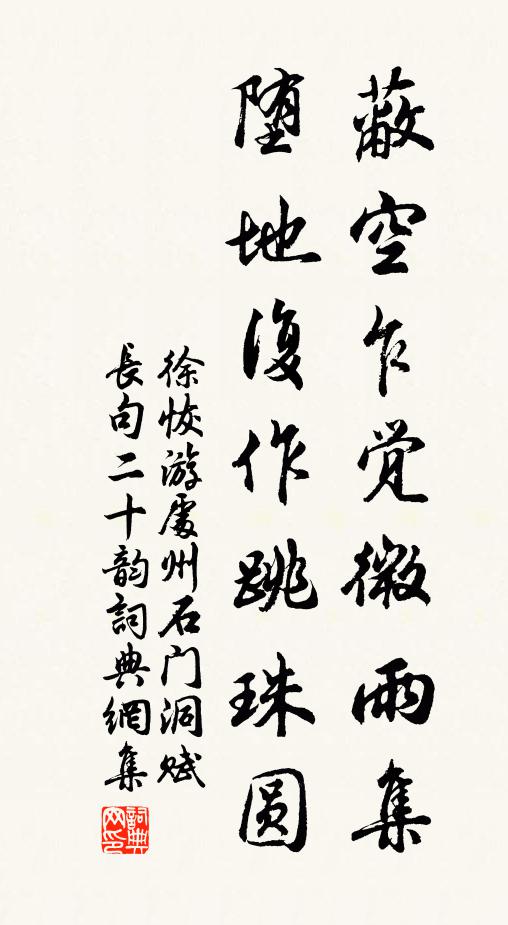 蔽空乍觉微雨集
堕地復作跳珠圆
徐恢游處州石门洞赋
長句二十韵詞典網集
詞典網印